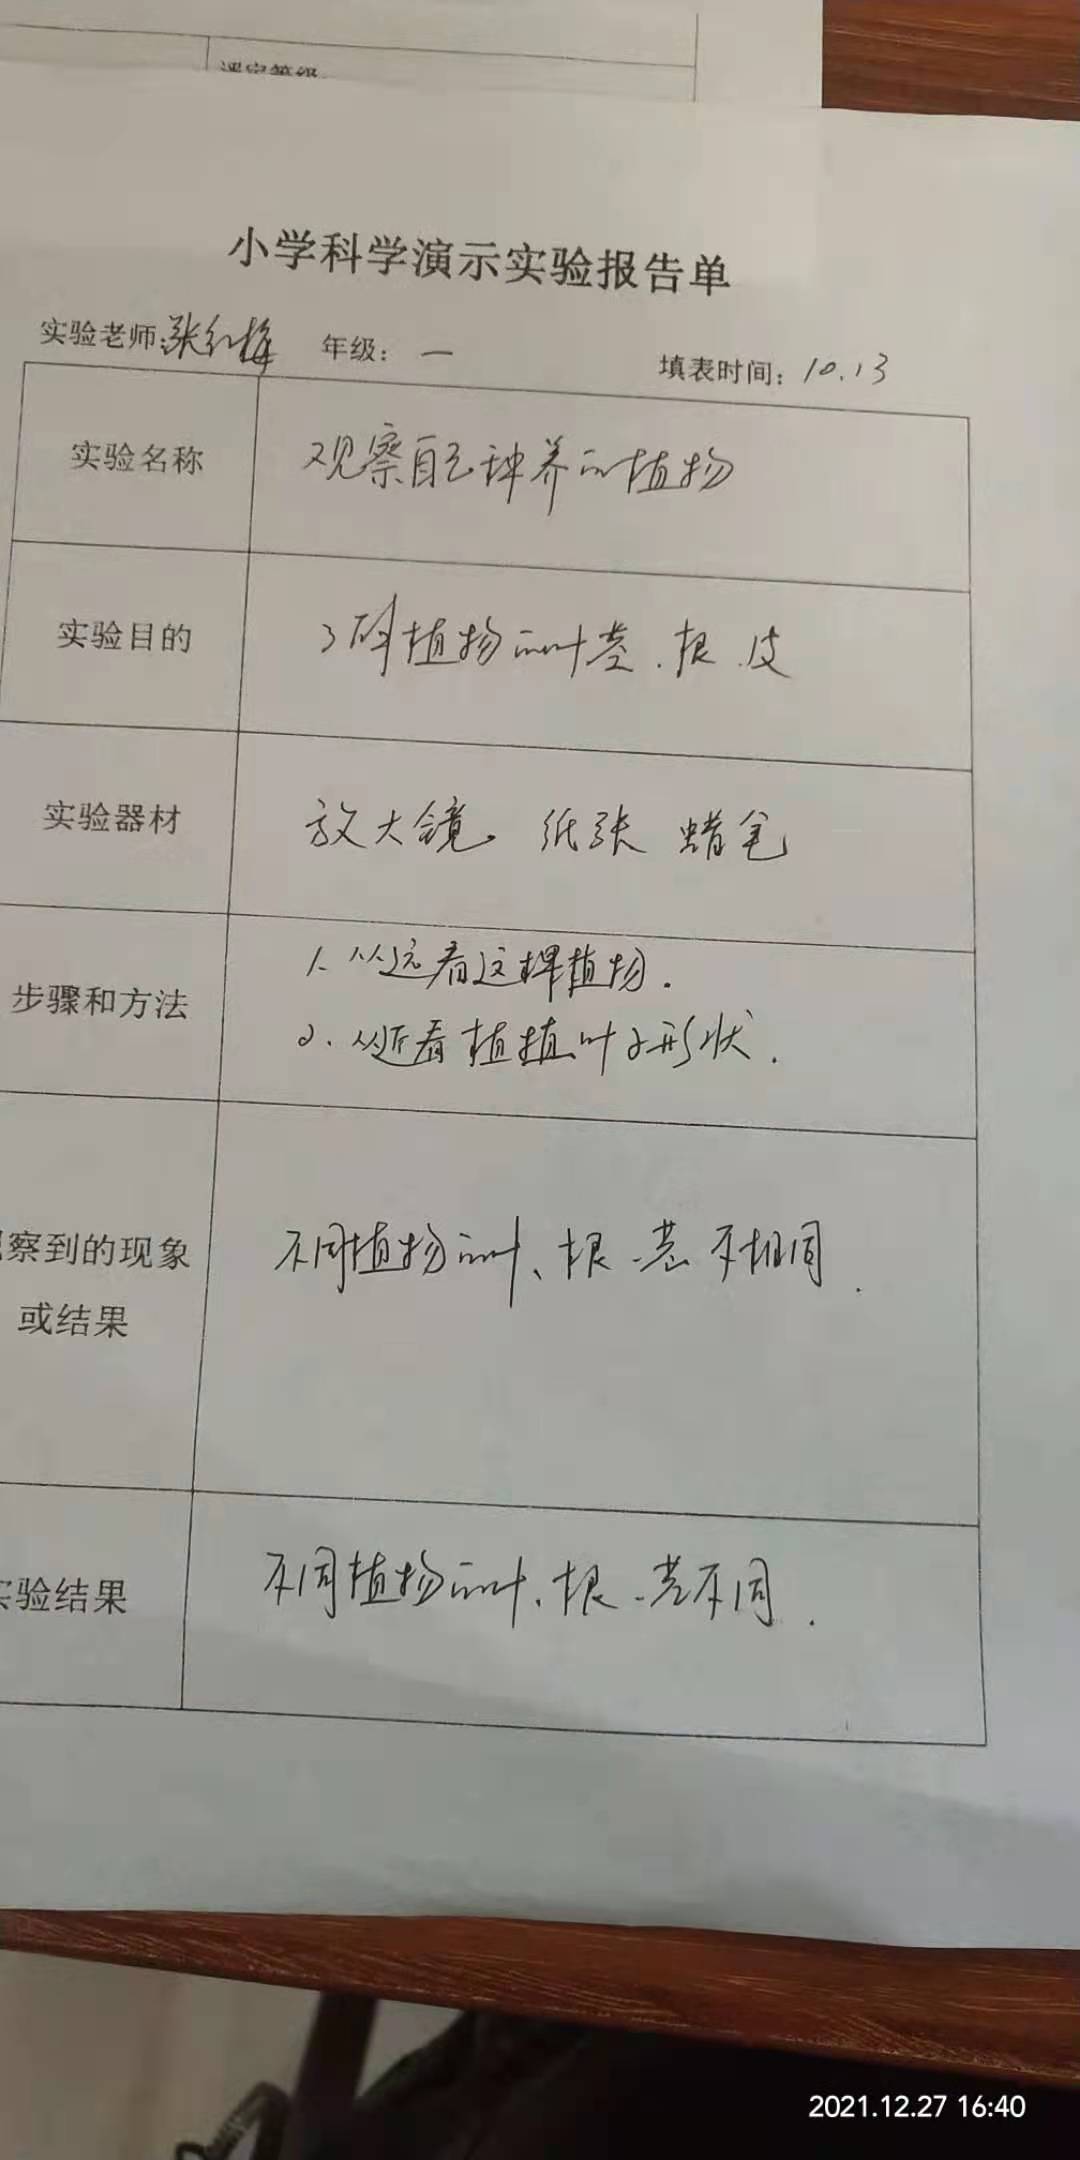 评定等级
小学科学演示实验报告单
实验老师:张红梅 年级：一 填表时间：10.13
实验名称 观察自己种养的植物
实验目的 了解植物的叶茎、根、皮
实验器材 放大镜 纸张 蜡笔
步骤和方法 1、从远看这棵植物.
2、从近看植植叶子形状.
察到的现象
或结果 不同植物的叶、根、茎不相同.
验结果 不同植物的叶、根、茎不同.
2021.12.27 16:40